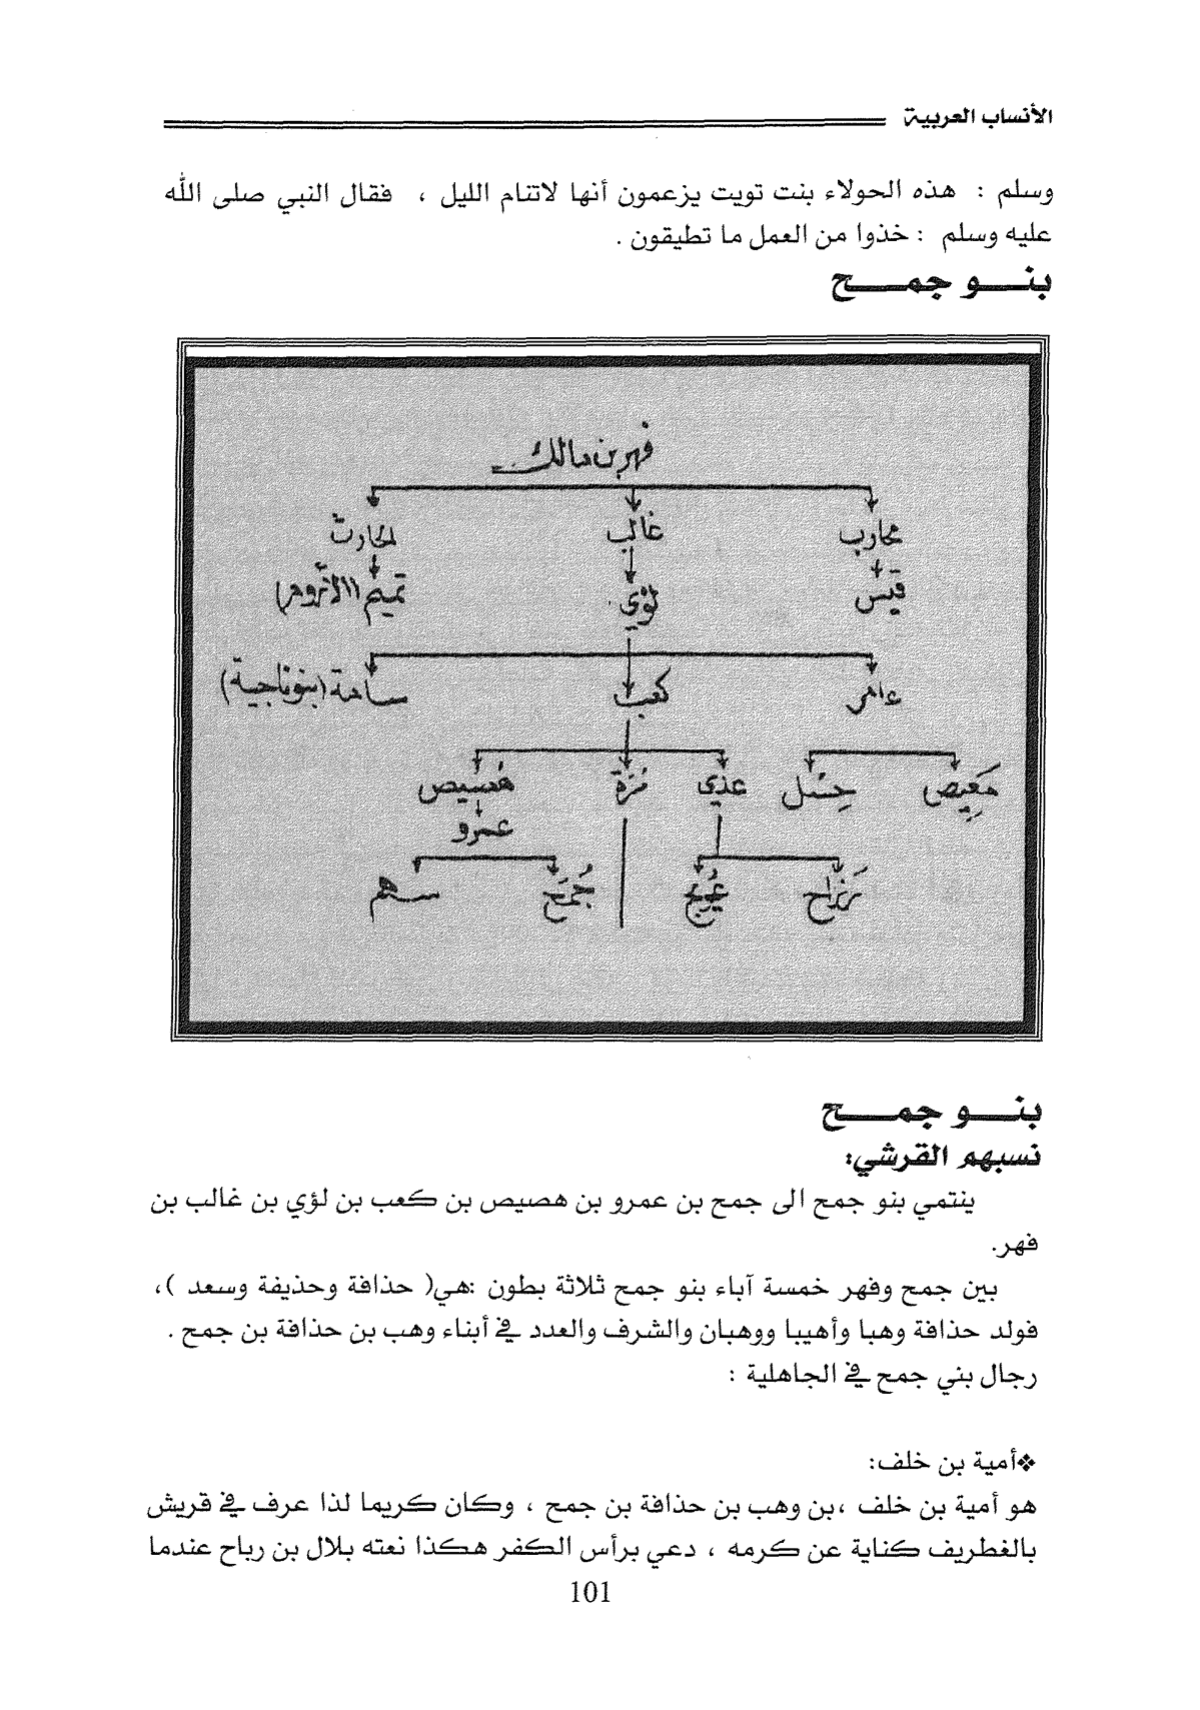 الأنساب العربية
وسلم : هذه الحولاء بنت تويت يزعمون أنها لاتنام الليل ، فقال النبي صلى الله
عليه وسلم : خذوا من العمل ما تطيقون .
بنــو جمــح
فهر بن مالك
محارب غالب الحارث
قيس لؤي تميم (الأدرم)
عامر كعب سامة (بنوناجية)
مَعِيص حِسْل عدي مُرّة هُصيص
عمرو
رَزاح عُوَيج جُمَح سهم
بنــو جمــح
نسبهم القرشي:
ينتمي بنو جمح الى جمح بن عمرو بن هصيص بن كعب بن لؤي بن غالب بن
فهر.
بين جمح وفهر خمسة آباء بنو جمح ثلاثة بطون :هي( حذافة وحذيفة وسعد )،
فولد حذافة وهبا وأهيبا ووهبان والشرف والعدد في أبناء وهب بن حذافة بن جمح .
رجال بني جمح في الجاهلية :
❖أمية بن خلف:
هو أمية بن خلف ،بن وهب بن حذافة بن جمح ، وكان كريما لذا عرف في قريش
بالغطريف كناية عن كرمه ، دعي برأس الكفر هكذا نعته بلال بن رباح عندما
101